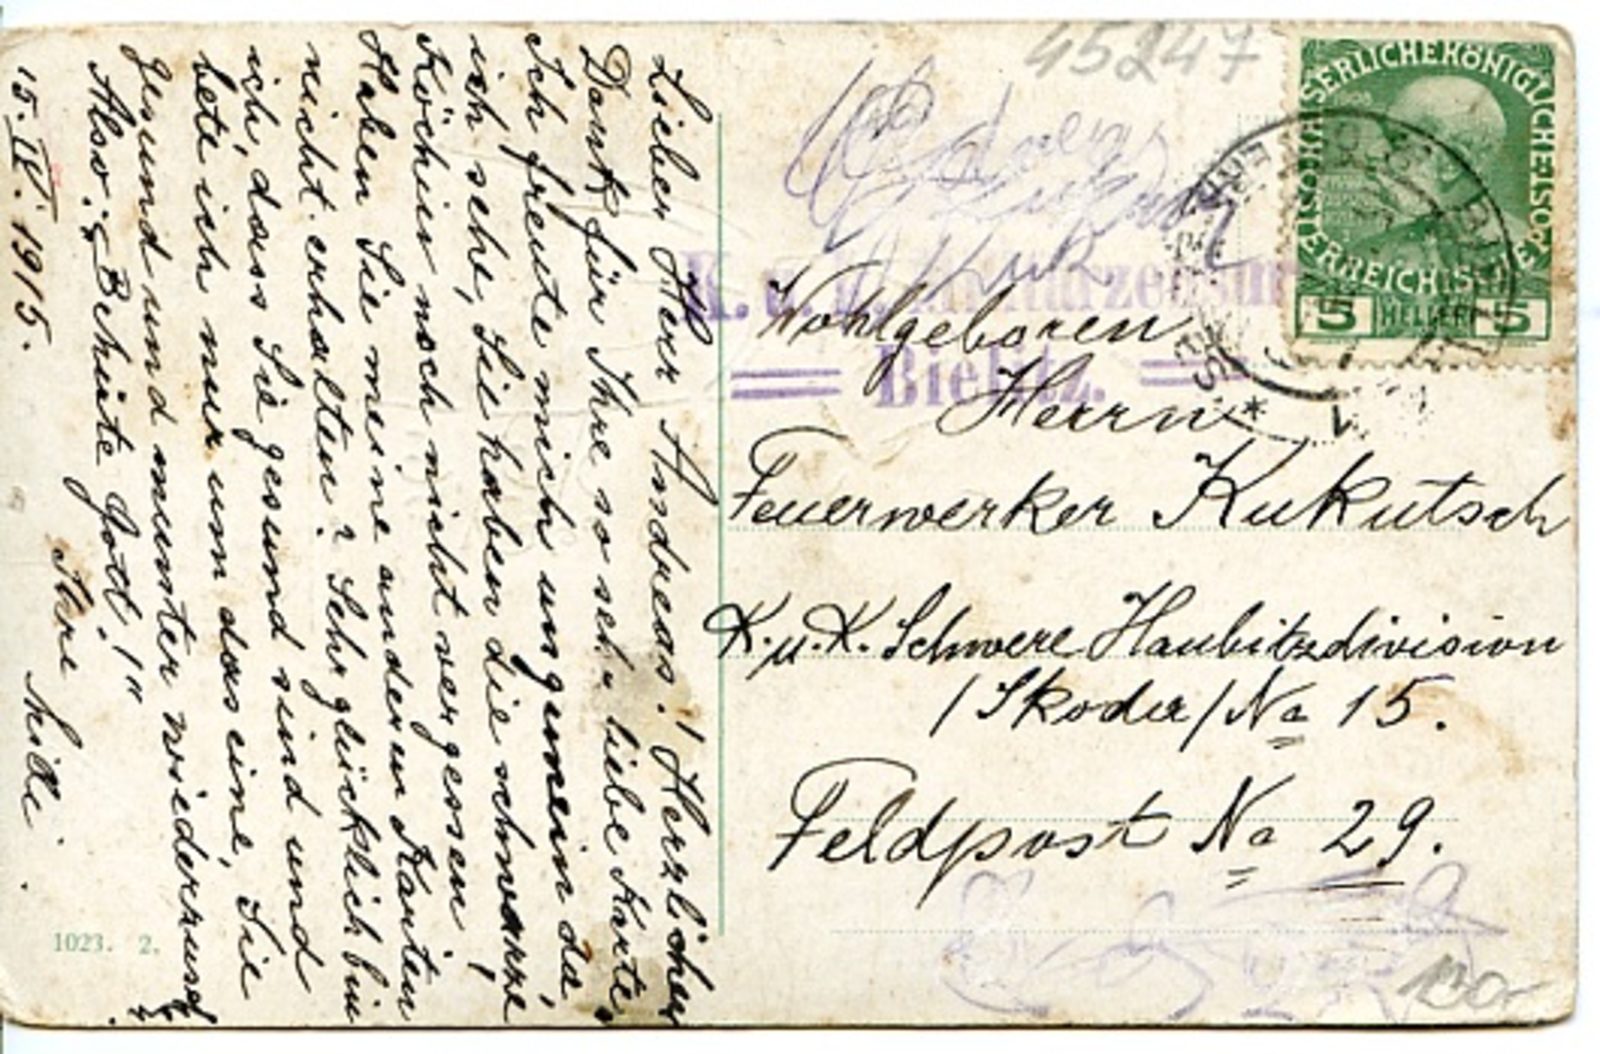 Lieber Herr Andreas! Herzlichen
Dank für Ihre so sehr liebe Karte,
Ich freute mich ungemein da
ich sehe, Sie haben die schwarze
Köchin noch nicht vergessen,
Haben Sie meine anderen Karten
nicht erhalten? Sehr glücklich bin
ich, dass Sie gesund sind und
bete ich nur um das eine, Sie
gesund und munter wiederzuseh.
Also: „Behüte Gott!"
Ihre
15. IV. 1915.
1023. 2.
45247
KAISERLICHEKÖNIGLICHE
ÖSTERREICHISCHE
5 HELLER 5
K. u. K. Militärzensur
Bielitz.
Wohlgeboren
Herrn
Feuerwerker Kukutsch
K. u. K. Schwere Haubitzdivision
/Skoda/ No 15.
Feldpost No 29.